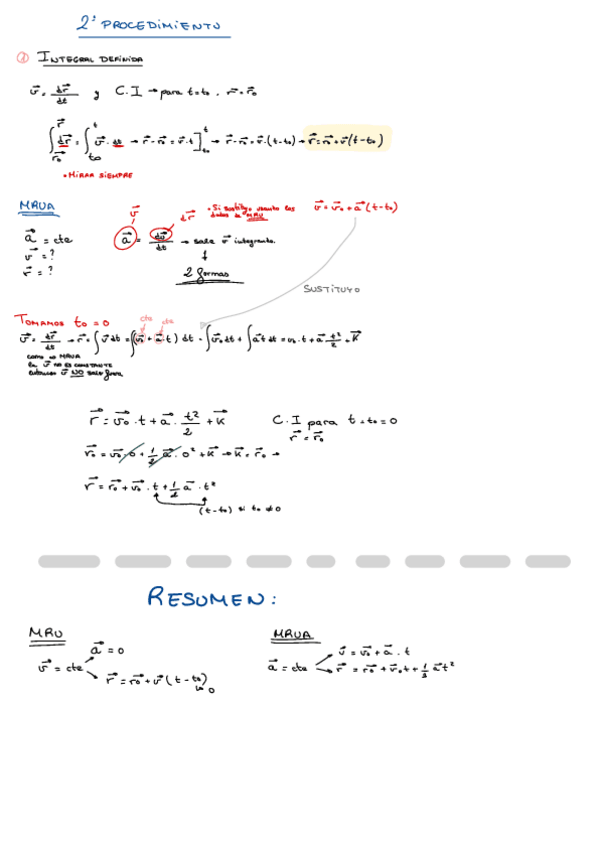 2º PROCEDIMIENTO
② INTEGRAL DEFINIDA
v⃗ = dr⃗/dt y C.I → para t=t₀, r⃗=r⃗₀
∫_{r⃗₀}^{r⃗} dr⃗ = ∫_{t₀}^{t} v⃗·dt → r⃗-r⃗₀ = v⃗·t]_{t₀}^{t} → r⃗-r⃗₀ = v⃗·(t-t₀) → r⃗=r⃗₀+v⃗(t-t₀)
• MIRAR SIEMPRE
MRUA
a⃗ = cte
v⃗ = ?
r⃗ = ?
v⃗ dr⃗
a⃗ = dv⃗/dt → sale v⃗ integrando.
2 formas
• Si sustituyo los datos de MRU
v⃗=v⃗₀+a⃗(t-t₀)
SUSTITUYO
TOMAMOS t₀=0
cte cte
v⃗ = dr⃗/dt → r⃗=∫v⃗dt = ∫(v⃗₀+a⃗·t) dt = ∫v⃗₀dt + ∫a⃗t dt = v₀·t+a⃗·t²/2+K⃗
como es MRUA
la v⃗ no es CONSTANTE
entonces v⃗ NO sale fuera
r⃗ = v⃗₀·t+a⃗·t²/2+K⃗ C.I para t=t₀=0
r⃗=r⃗₀
r⃗₀ = v⃗₀·0+1/2 a⃗·0²+K⃗ → K⃗=r⃗₀ →
r⃗ = r⃗₀+v⃗₀·t+1/2 a⃗·t²
(t-t₀) si t₀≠0
RESUMEN:
MRU
a⃗=0
v⃗=cte
r⃗=r⃗₀+v⃗(t-t₀)
0
MRUA
v⃗=v⃗₀+a⃗.t
a⃗=cte
r⃗=r⃗₀+v⃗₀t+1/2 a⃗t²